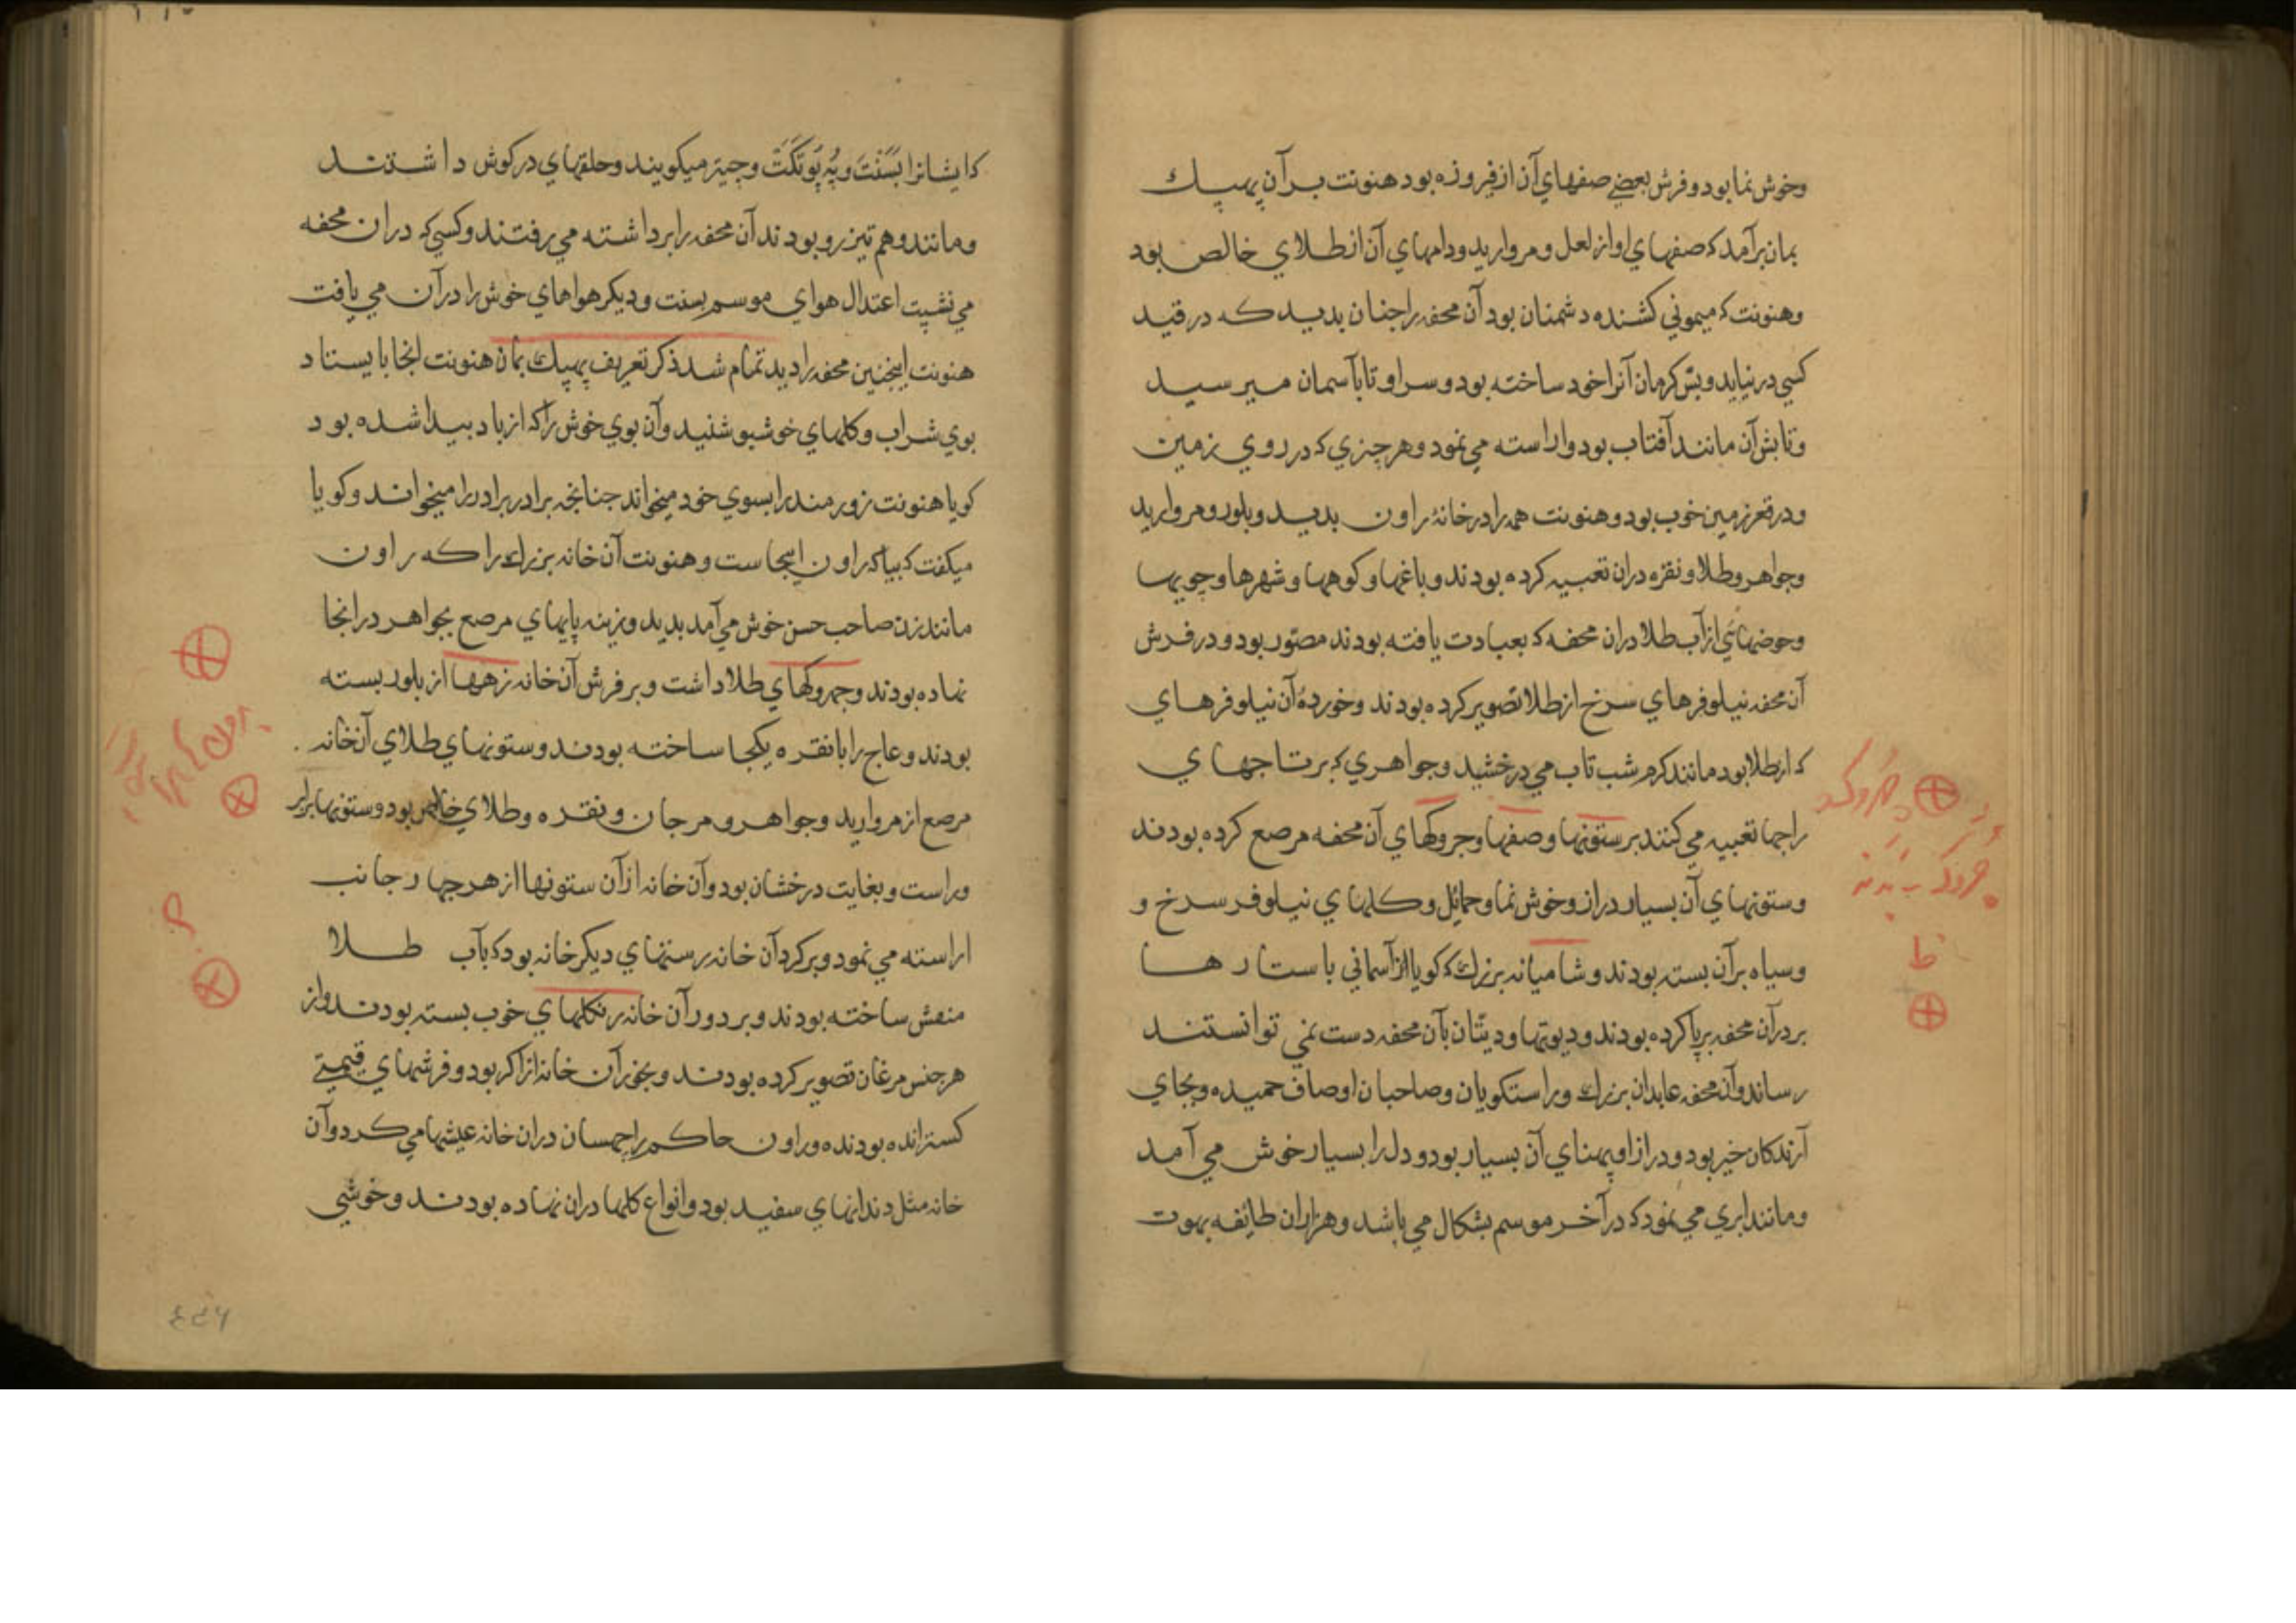 وخوش نما بود و فرش بعضے صفهاي آن از فيروزه بود هنونت بر آن پهپك
بمان برآمد كه صفهاي او از لعل و مرواريد و دامهاي آن از طلاي خالص بود
وهنونت كه ميموني كشنده دشمنان بود آن محفه را جنان بديد كه در قيد
كسي در نيايد وبش كرمان آنرا خود ساخته بود و سر او تا بآسمان ميرسيد
وتابش آن مانند آفتاب بود و اراسته مي نمود و هر چيزي كه در روي زمين
ودر قعر زمين خوب بود و هنونت همه را در خانۀ راون بديد و بلور و مرواريد
وجواهر و طلا و نقره دران تعبيه كرده بودند و باغها و كوهها و شهرها و جويها
وحوضهائي از آب طلا دران محفه كه بعبادت يافته بودند مصور بود و در فرش
آن محفه نيلوفرهاي سرخ از طلا تصوير كرده بودند وخوردۀ آن نيلوفرهاي
كه از طلا بود مانند كرم شب تاب مي درخشيد و جواهري كه بر تاجهاي
راجها تعبيه مي كنند بر ستونها و صفها و جروكهاي آن محفه مرصع كرده بودند
وستونهاي آن بسيار دراز و خوش نما و حمائل و كلهاي نيلوفر سرخ و
وسياه بر آن بسته بودند و شاميانه بزرك كه كويا از آسماني با ستارها
بر در آن محفه برپا كرده بودند و ديوتها و ديتان بآن محفه دست نمي توانستند
رساند وآن محفه عابدان بزرك وراستكويان وصاحبان اوصاف حميده وبجاي
آرندكان خير بود و درازا و پهناي آن بسيار بود و دل را بسيار خوش مي آمد
ومانند ابري مي نمود كه در آخر موسم بشكال مي باشد و هزاران طائفه بهوت
كه ايشانرا بسنت و پُه پَوتكَتَ وچيتر ميكويند وحلقهاي در كوش داشتند
ومانند وهم تيزرو بودند آن محفه را برداشته مي رفتند وكسي كه دران محفه
مي نشست اعتدال هواي موسم بسنت و ديكر هواهاي خوش را در آن مي يافت
هنونت اينچنين محفه را ديد تمام شد ذكر تعريف پهپك بمان هنونت انجا بايستاد
بوي شراب و كلهاي خوشبو شنيد وآن بوي خوش را كه از باد پيدا شده بود
كويا هنونت زورمند را بسوي خود ميخواند جنانجه برادر برادر را ميخواند و كويا
ميكفت كه بيا كه راون اينجاست و هنونت آن خانه بزرك را كه راون
مانند زن صاحب حسن خوش مي آمد بديد و زينه پايهاي مرصع بجواهر در انجا
نهاده بودند و جهروكهاي طلا داشت و بر فرش آن خانه زهها از بلور بسته
بودند و عاج را با نقره يكجا ساخته بودند و ستونهاي طلاي آن خانه
مرصع از مرواريد و جواهر و مرجان و نقره و طلاي خالص بود و ستونها برابر
وراست و بغايت درخشان بود و آن خانه از آن ستونها از هر چهار جانب
اراسته مي نمود و بر كرد آن خانه رستنهاي ديكر خانه بود كه بآب طلا
منقش ساخته بودند و بر دور آن خانه رنكلهاي خوب بسته بودند و از
هر جنس مرغان تصوير كرده بودند و بخور آن خانه از اكر بود و فرشهاي قيمتے
كسترانده بودند و راون حاكم راچهسان دران خانه عيشها مي كرد وآن
خانه مثل دندانهاي سفيد بود و انواع كلها دران نهاده بودند و خوشي
۴۵۶